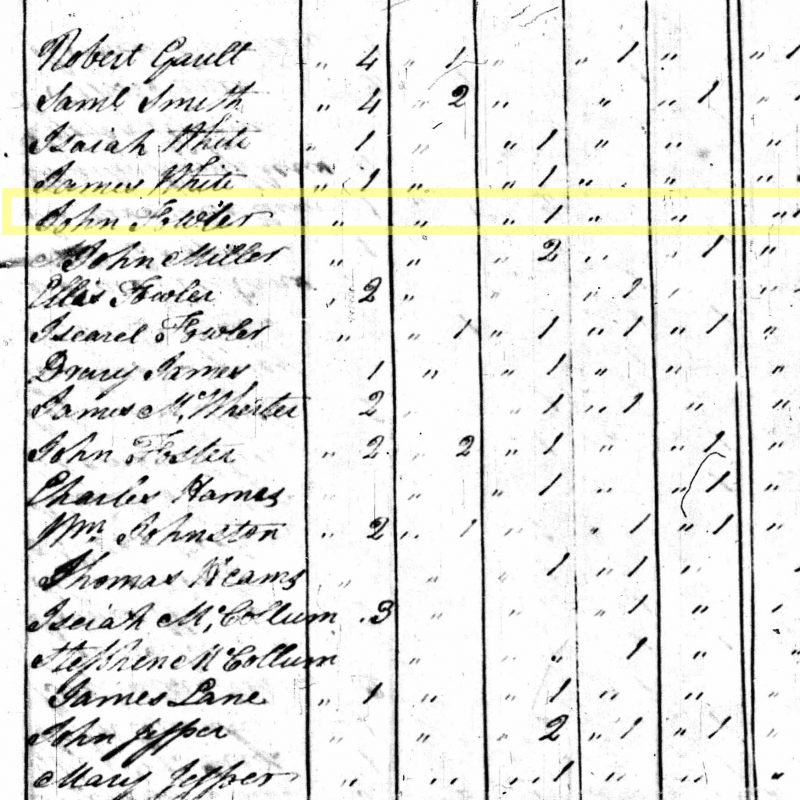 Robert Gault " 4 " 1 " " 1 " " 1
Saml Smith " 4 " 2 " " " 1 "
Isaiah White " 1 " " 1 " " "
James White " 1 " " 1 " " "
John Fowler " " " 1 " " "
John Miller " " 2 " " 1 "
Ellis Fowler " 2 " " 1 " "
Isearel Fowler " " 1 " 1 " 1 " 1 "
Drury James 1 " " 1 " " "
James McWherter 2 " " 1 " 1 " "
John Foster " 2 2 " 1 " " 1 "
Charles Hames " 1 " " 1 "
Wm Johnston " 2 " 1 " " 1 " 1 "
Thomas " " 1 " 1 " 1
Iseiah McCollum . 3 " " 1 " "
Stephen McCollum " " " 1 " "
James Lane " 1 " " 1 " " "
John " " 2 " 1 " 1 "
Mary " " " 1 " " "